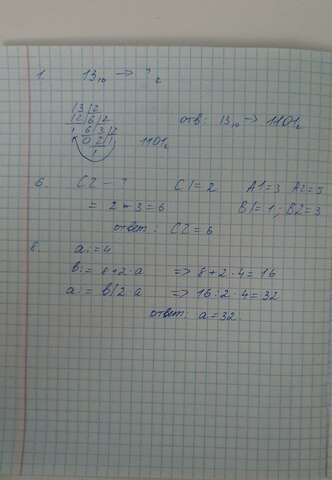 1. 13₁₀ → ?₂
13|2
12|6|2
1 6|3|2
0 2|1
1
1101₂
отв: 13₁₀ → 1101₂
6. C2 - ? C1 = 2 A1 = 3 A2 = 5
= 2 * 3 = 6 B1 = 1, B2 = 3
ответ: C2 = 6
8. a: = 4
b: = 8 + 2 · a => 8 + 2 · 4 = 16
a: = b/2 · a => 16 : 2 · 4 = 32
ответ: a = 32.